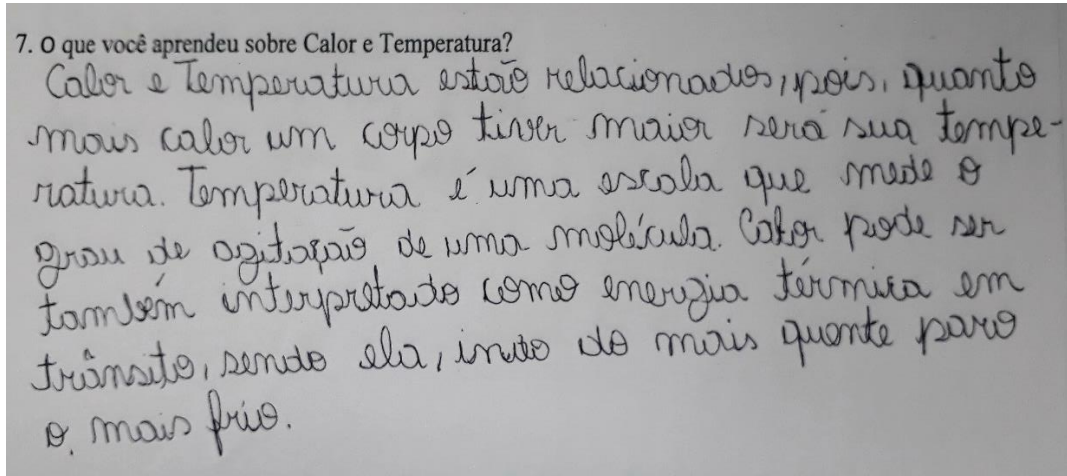 7. O que você aprendeu sobre Calor e Temperatura?
Calor e Temperatura estão relacionados, pois, quanto
mais calor um corpo tiver maior será sua tempe-
ratura. Temperatura é uma escala que mede o
grau de agitação de uma molécula. Calor pode ser
também interpretado como energia térmica em
trânsito, sendo ela, indo do mais quente para
o mais frio.